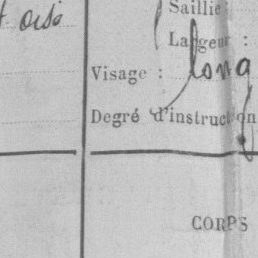 Saillie :
Largeur :
Visage : long
Degré d'instruction
CORPS